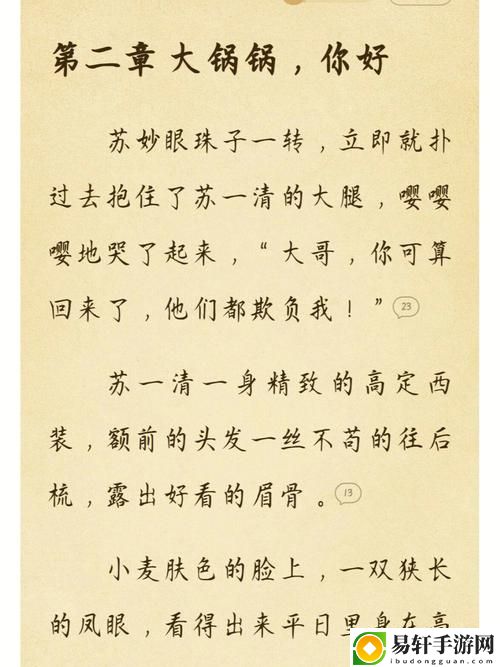 第二章 大锅锅，你好
苏妙眼珠子一转，立即就扑
过去抱住了苏一清的大腿，嘤嘤
嘤地哭了起来，“大哥，你可算
回来了，他们都欺负我！”
23
苏一清一身精致的高定西
装，额前的头发一丝不苟的往后
梳，露出好看的眉骨。
13
小麦肤色的脸上，一双狭长
的凤眼，看得出来平日里身在高
易轩手游网
ibudongguan.com